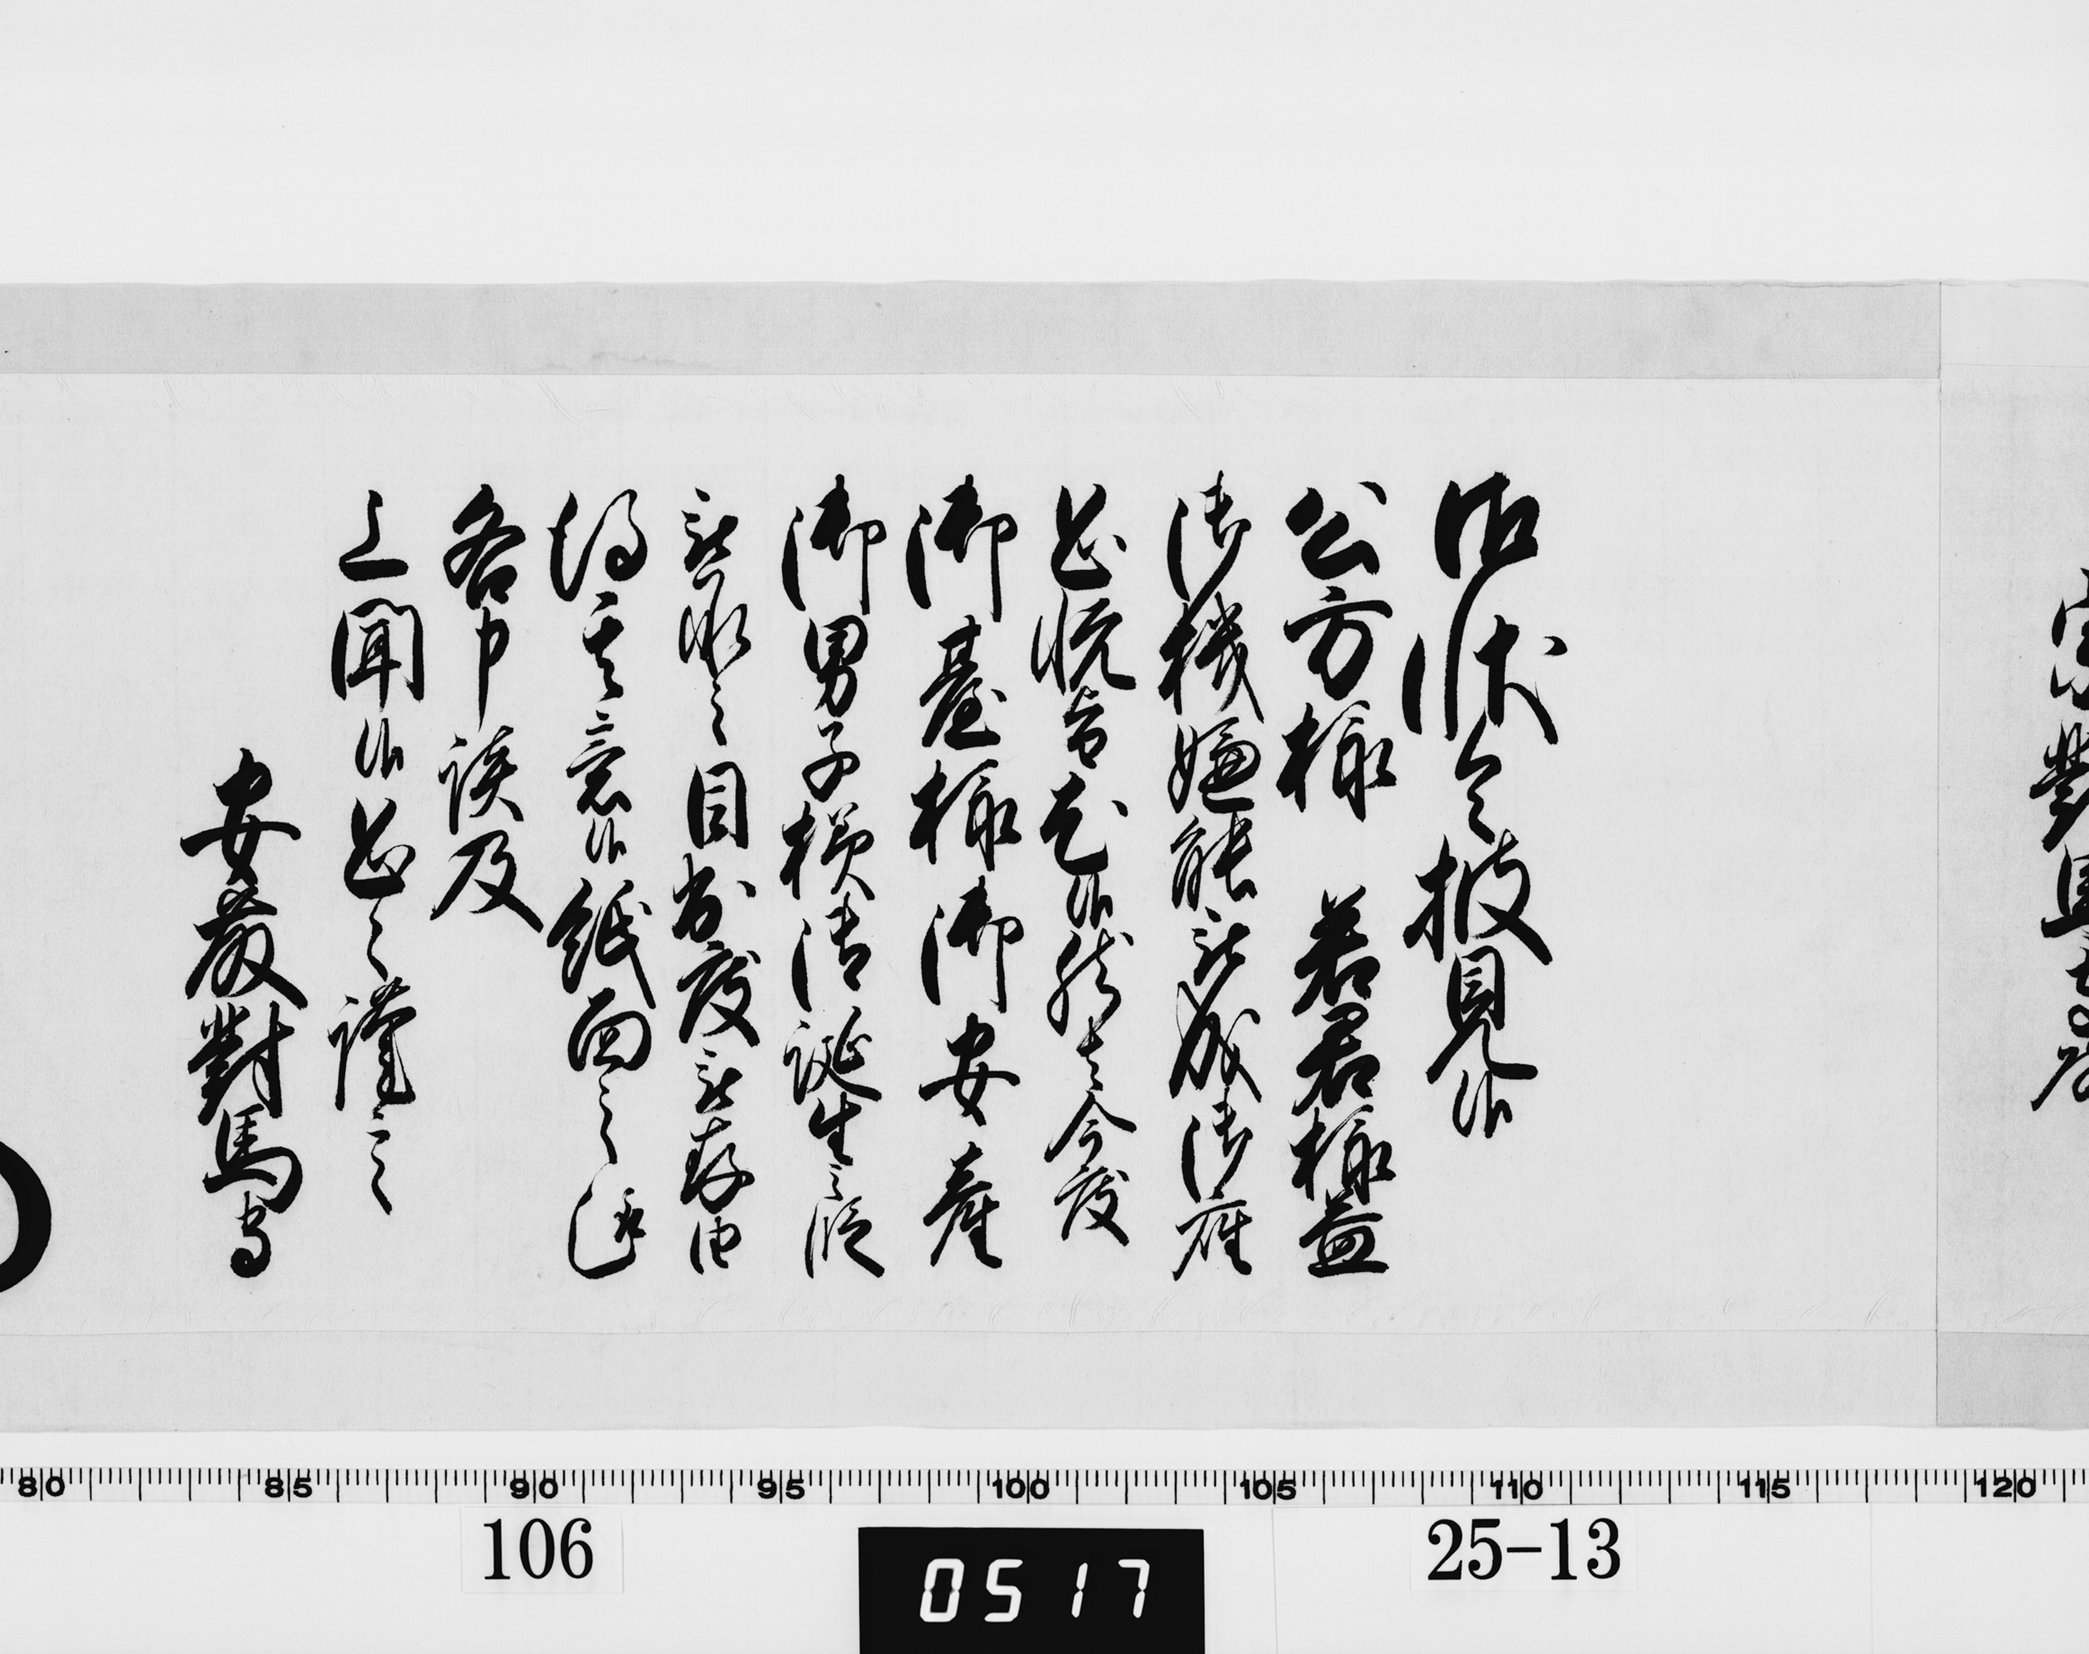 宗對馬守殿
御状令披見候
公方様 若君様益
御機嫌能被成御座
恐悦旨尤候然者今度
御臺様御安産
御男子様御誕生之段
被承之目出度被存由
得其意候紙面之通
各申談及
上聞候恐々謹言
安藤對馬守
80 85 90 95 100 105 110 115 120
106
0517
25-13